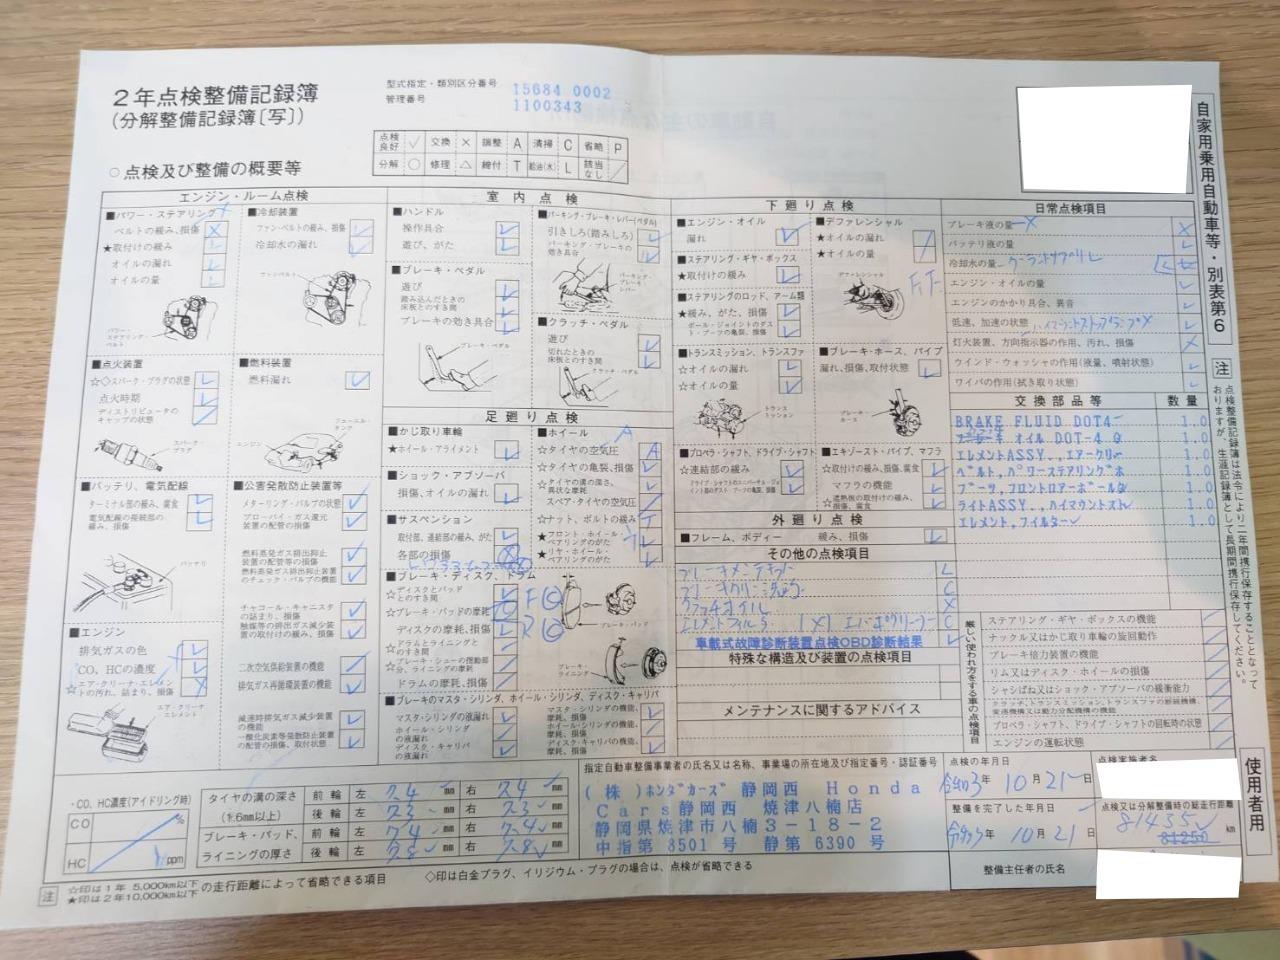 2年点検整備記録簿
(分解整備記録簿〔写〕)
型式指定・類別区分番号 15684 0002
管理番号 1100343
点検良好 ✓ 交換 × 調整 A 清掃 C 省略 P
分解 ○ 修理 △ 締付 T 給油(水) L 該当なし ／
○点検及び整備の概要等
自家用乗用自動車等・別表第6
注 点検整備記録簿は法令により二年間携行保存することとなって
おりますが、生涯記録簿として長期間携行保存してください。
使用者用
エンジン・ルーム点検
■パワー・ステアリング
ベルトの緩み、損傷
★取付けの緩み
オイルの漏れ
オイルの量
パワー・ステアリング・ベルト
■冷却装置
ファン・ベルトの緩み、損傷
冷却水の漏れ
ファンベルト
■点火装置
☆◇スパーク・プラグの状態
点火時期
ディストリビュータのキャップの状態
スパーク・プラグ
■燃料装置
燃料漏れ
エンジン
フューエル・タンク
■バッテリ、電気配線
ターミナル部の緩み、腐食
電気配線の接続部の緩み、損傷
バッテリ
■公害発散防止装置等
メターリング・バルブの状態
ブローバイ・ガス還元装置の配管の損傷
燃料蒸発ガス排出抑止装置の配管等の損傷
燃料蒸発ガス排出抑止装置のチェック・バルブの機能
チャコール・キャニスタの詰まり、損傷
触媒等の排出ガス減少装置の取付けの緩み、損傷
二次空気供給装置の機能
排気ガス再循環装置の機能
減速時排気ガス減少装置の機能
一酸化炭素等発散防止装置の配管の損傷、取付状態
■エンジン
排気ガスの色
CO、HCの濃度
☆エア・クリーナ・エレメントの汚れ、詰まり、損傷
エア・クリーナエレメント
室内点検
■ハンドル
操作具合
遊び、がた
■ブレーキ・ペダル
遊び
踏み込んだときの床板とのすき間
ブレーキの効き具合
ブレーキ・ペダル
■パーキング・ブレーキ・レバー(ペダル)
引きしろ(踏みしろ)
パーキング・ブレーキの効き具合
パーキング・ブレーキ・レバー
■クラッチ・ペダル
遊び
切れたときの床板とのすき間
クラッチ・ペダル
足廻り点検
■かじ取り車輪
★ホイール・アライメント
■ショック・アブソーバ
損傷、オイルの漏れ
■サスペンション
取付部、連結部の緩み、がた
各部の損傷
■ホイール
☆タイヤの空気圧
☆タイヤの亀裂、損傷
☆タイヤの溝の深さ、異状な摩耗
スペア・タイヤの空気圧
☆ナット、ボルトの緩み
★フロント・ホイール・ベアリングのがた
★リヤ・ホイール・ベアリングのがた
■ブレーキ・ディスク、ドラム
☆ディスクとパッドとのすき間
☆ブレーキ・パッドの摩耗
ディスクの摩耗、損傷
☆ドラムとライニングとのすき間
☆ブレーキ・シューの摺動部分、ライニングの摩耗
ドラムの摩耗、損傷
ブレーキ・パッド
ブレーキ・ライニング
■ブレーキのマスタ・シリンダ、ホイール・シリンダ、ディスク・キャリパ
マスタ・シリンダの液漏れ
ホイール・シリンダの液漏れ
ディスク・キャリパの液漏れ
マスタ・シリンダの機能、摩耗、損傷
ホイール・シリンダの機能、摩耗、損傷
ディスク・キャリパの機能、摩耗、損傷
下廻り点検
■エンジン・オイル
漏れ
■ステアリング・ギヤ・ボックス
★取付けの緩み
■ステアリングのロッド、アーム類
★緩み、がた、損傷
ボール・ジョイントのダスト・ブーツの亀裂、損傷
■トランスミッション、トランスファ
☆オイルの漏れ
☆オイルの量
トランスミッション
■プロペラ・シャフト、ドライブ・シャフト
☆連結部の緩み
■デファレンシャル
★オイルの漏れ
★オイルの量
デファレンシャル
■ブレーキ・ホース、パイプ
漏れ、損傷、取付状態
ブレーキ・ホース
■エキゾースト・パイプ、マフラ
☆取付けの緩み、損傷、腐食
マフラの機能
★遮熱板の取付けの緩み、損傷、腐食
外廻り点検
■フレーム、ボディー 緩み、損傷
その他の点検項目
車載式故障診断装置点検OBD診断結果
特殊な構造及び装置の点検項目
メンテナンスに関するアドバイス
日常点検項目
ブレーキ液の量
バッテリ液の量
冷却水の量
エンジン・オイルの量
エンジンのかかり具合、異音
低速、加速の状態
灯火装置、方向指示器の作用、汚れ、損傷
ウインド・ウォッシャの作用(液量、噴射状態)
ワイパの作用(拭き取り状態)
交換部品等 数量
BRAKE FLUID DOT4 1.0
オイル DOT-4 1.0
エレメントASSY.,エアークリー 1.0
ベルト,パワーステアリングポ 1.0
ブーツ,フロントロアーボール 1.0
ライトASSY.,ハイマウントスト 1.0
エレメント,フイルター 1.0
厳しい使われ方をする車の点検項目
ステアリング・ギヤ・ボックスの機能
ナックル又はかじ取り車輪の旋回動作
ブレーキ倍力装置の機能
リム又はディスク・ホイールの損傷
シャシばね又はショック・アブソーバの緩衝能力
クラッチ、トランスミッション、トランスファの断続機構、変速機構又は動力分配機構の機能
プロペラ・シャフト、ドライブ・シャフトの回転時の状態
エンジンの運転状態
・CO、HC濃度(アイドリング時)
CO %
HC ppm
タイヤの溝の深さ 前輪 左 7.4 mm 右 7.4 mm
(1.6mm以上) 後輪 左 7.3 mm 右 7.3 mm
ブレーキ・パッド、ライニングの厚さ 前輪 左 mm 右 mm
後輪 左 mm 右 mm
指定自動車整備事業者の氏名又は名称、事業場の所在地及び指定番号・認証番号
(株)ホンダカーズ静岡西 Honda
Cars静岡西 焼津八楠店
静岡県焼津市八楠3-18-2
中指第 8501 号 静第 6390 号
点検の年月日
令和3年10月21日
整備を完了した年月日
令和3年10月21日
整備主任者の氏名
点検実施者名
点検又は分解整備時の総走行距離
81435 km
81250
注 ☆印は1年 5,000km以下
★印は2年10,000km以下 の走行距離によって省略できる項目
◇印は白金プラグ、イリジウム・プラグの場合は、点検が省略できる